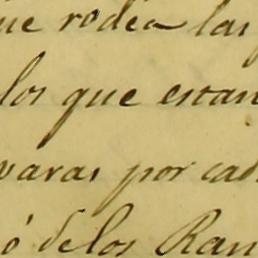 que rodéa las
los que estan
varas por cad
ó de los Ran